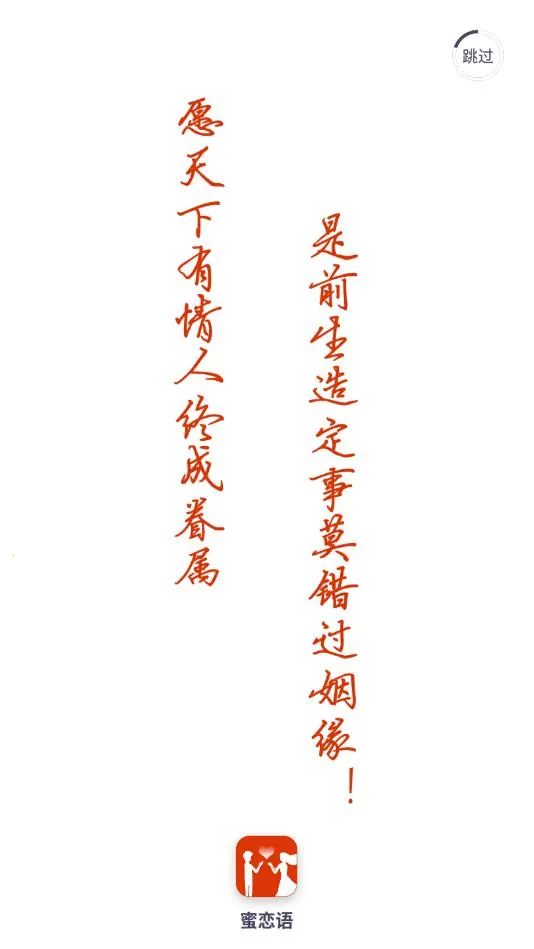 跳过
愿天下有情人终成眷属
是前生造定事莫错过姻缘！
蜜恋语